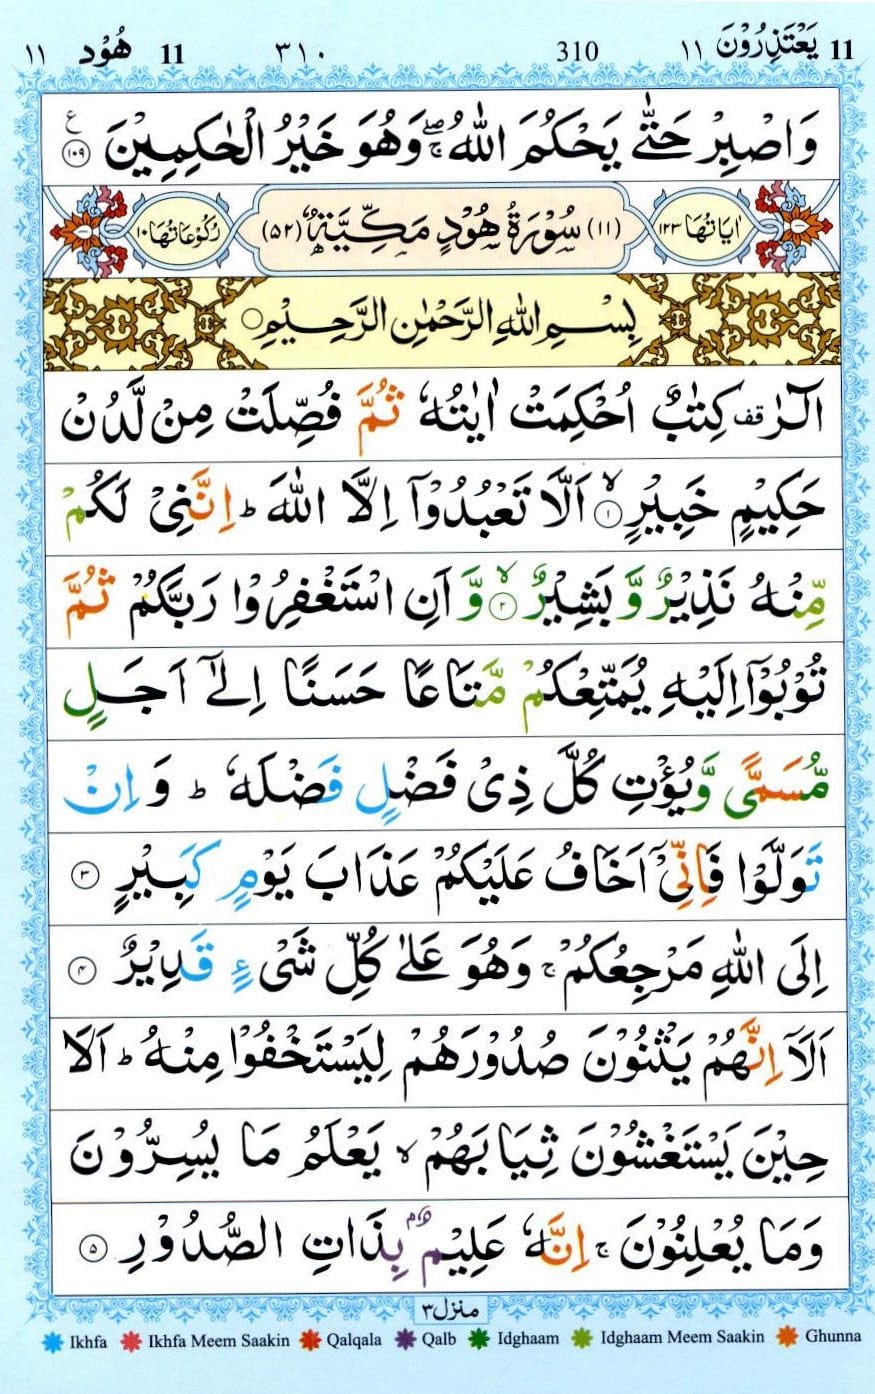 11 يَعْتَذِرُوْنَ ١١ 310 ٣١٠ 11 هُوْد ١١
وَاصْبِرْ حَتّٰى يَحْكُمَ اللّٰهُ ۚۖ وَهُوَ خَيْرُ الْحٰكِمِيْنَ ع ١٠٩
اٰيَاتُهَا ١٢٣ (١١) سُوْرَةُ هُوْدٍ مَكِّيَّةٌ (٥٢) رُكُوْعَاتُهَا ١٠
بِسْمِ اللّٰهِ الرَّحْمٰنِ الرَّحِيْمِ
الٓرٰ قف كِتٰبٌ اُحْكِمَتْ اٰيٰتُهٗ ثُمَّ فُصِّلَتْ مِنْ لَّدُنْ
حَكِيْمٍ خَبِيْرٍ ۙ ١ اَلَّا تَعْبُدُوْٓا اِلَّا اللّٰهَ ؕ اِنَّنِيْ لَكُمْ
مِّنْهُ نَذِيْرٌ وَّ بَشِيْرٌ ۙ ٢ وَّ اَنِ اسْتَغْفِرُوْا رَبَّكُمْ ثُمَّ
تُوْبُوْٓا اِلَيْهِ يُمَتِّعْكُمْ مَّتَاعًا حَسَنًا اِلٰٓى اَجَلٍ
مُّسَمًّى وَّيُؤْتِ كُلَّ ذِيْ فَضْلٍ فَضْلَهٗ ؕ وَ اِنْ
تَوَلَّوْا فَاِنِّيْٓ اَخَافُ عَلَيْكُمْ عَذَابَ يَوْمٍ كَبِيْرٍ ٣
اِلَى اللّٰهِ مَرْجِعُكُمْ ۚ وَهُوَ عَلٰى كُلِّ شَيْءٍ قَدِيْرٌ ٤
اَلَآ اِنَّهُمْ يَثْنُوْنَ صُدُوْرَهُمْ لِيَسْتَخْفُوْا مِنْهُ ؕ اَلَا
حِيْنَ يَسْتَغْشُوْنَ ثِيَابَهُمْ ۙ يَعْلَمُ مَا يُسِرُّوْنَ
وَمَا يُعْلِنُوْنَ ۚ اِنَّهٗ عَلِيْمٌۢ بِذَاتِ الصُّدُوْرِ ٥
منزل٣
Ikhfa Ikhfa Meem Saakin Qalqala Qalb Idghaam Idghaam Meem Saakin Ghunna